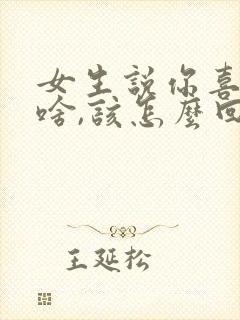 女生説你喜
啥,該怎麼回
王延松